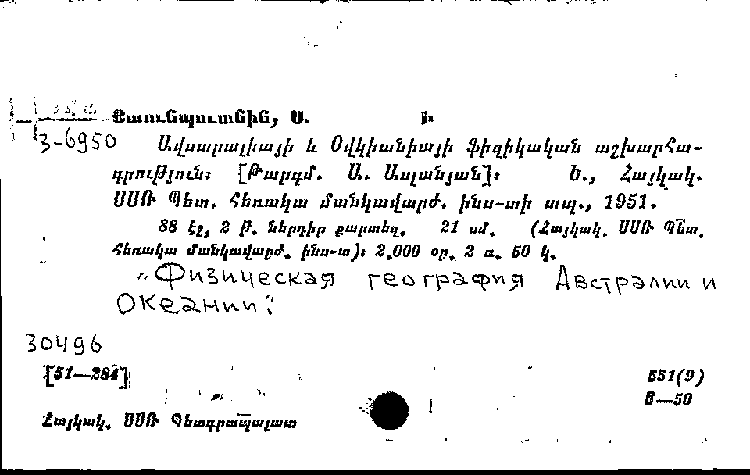 Ն.
3-6950 Ավստրալիայի և Օվկիանիայի ֆիզիկական աշխարհա-
գրություն: [Թարգմ. Ա. Ասլանյան]: Ե., Հայկակ.
ՍՍՌ Պետ. հեռակա մանկավարժ. ինս-տի տպ., 1951.
88 էջ, 2 թ. ներդիր քարտեզ. 21 սմ. (Հայկակ. ՍՍՌ Պետ.
հեռակա մանկավարժ. ինս-տ): 2.000 օր. 2 ռ. 50 կ.
„Физическая география Австралии и
Океании:
30496
[51—284] 551(9)
50
Հայկակ. ՍՍՌ Պետգրապալատ